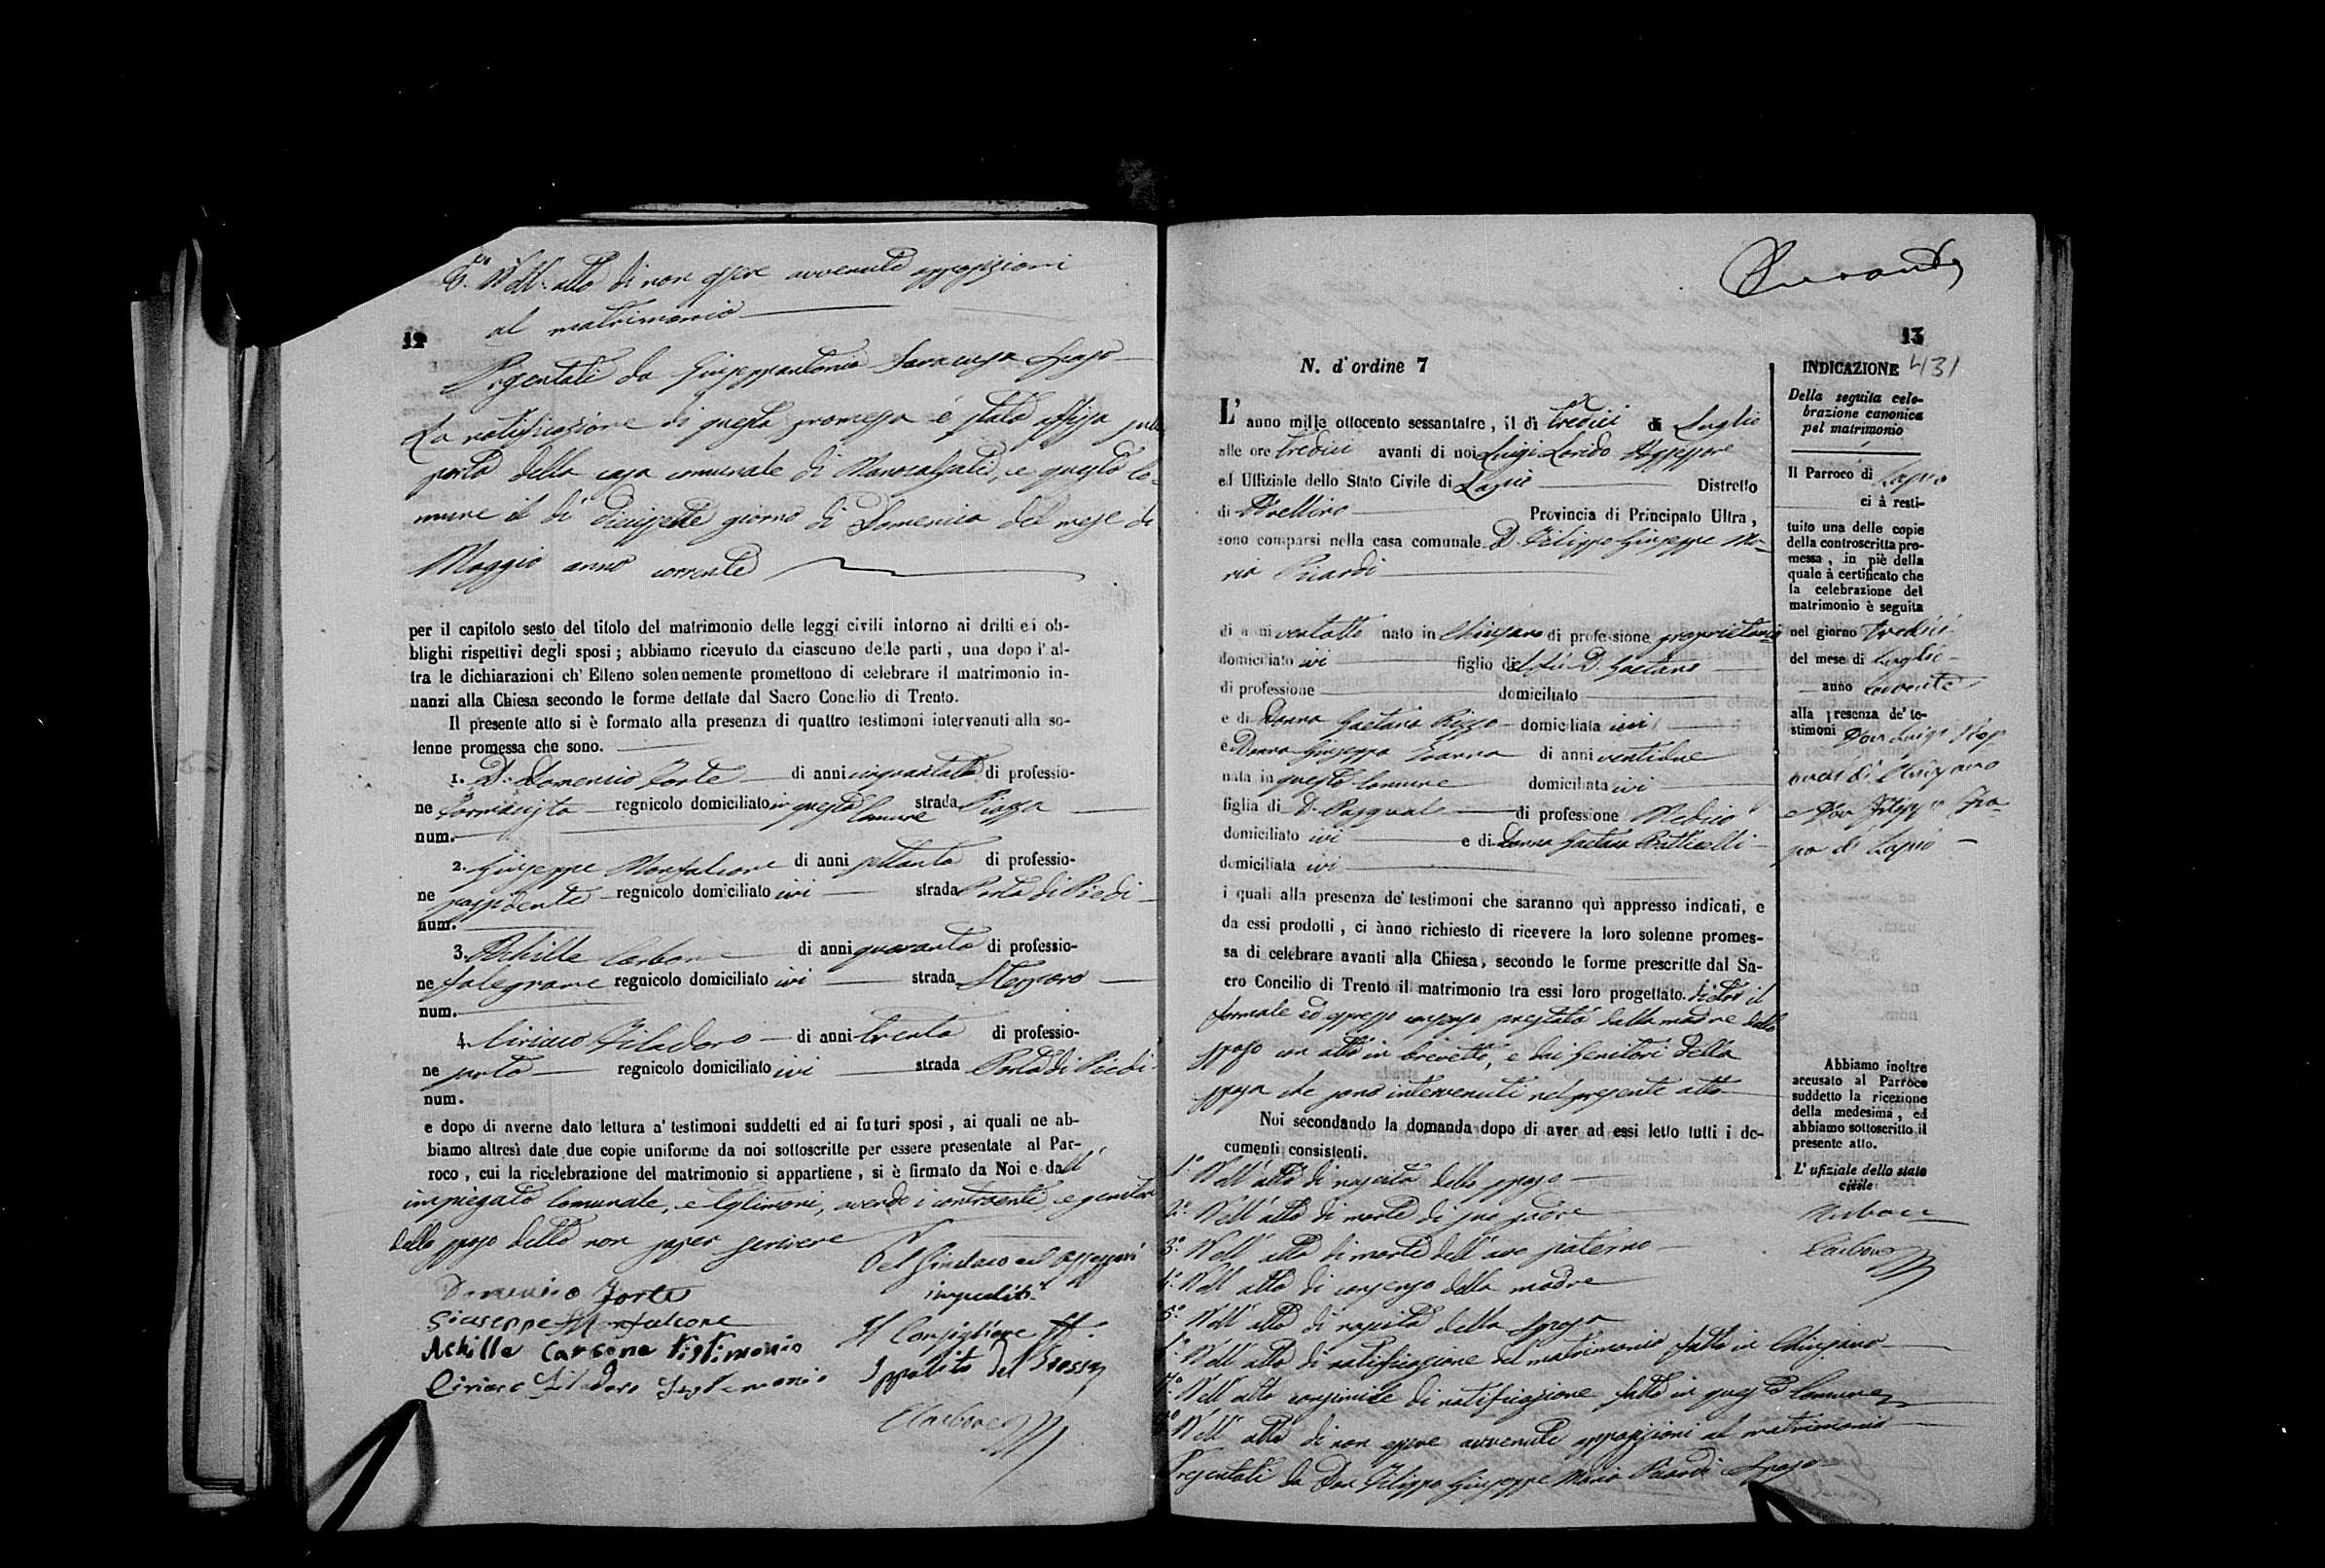 6.° Nell'atto di non essere avvenute opposizioni
al matrimonio
12
Presentati da Giuseppantonio Saracusa sposo
La notificazione di questa promessa è stata affissa
porta della casa comunale di Manocalzati, e questo Co-
mune il dì diciassette giorno di Domenica del mese di
Maggio anno corrente
per il capitolo sesto del titolo del matrimonio delle leggi civili intorno ai dritti ei ob-
blighi rispettivi degli sposi ; abbiamo ricevuto da ciascuno delle parti , una dopo l' al-
tra le dichiarazioni ch' Elleno solennemente promettono di celebrare il matrimonio in-
nanzi alla Chiesa secondo le forme dettate dal Sacro Concilio di Trento.
Il presente atto si è formato alla presenza di quattro testimoni intervenuti alla so-
lenne promessa che sono.
1. D. Domenico Forte di anni cinquantotto di professio-
ne Farmacista regnicolo domiciliato in questo Comune strada Piazza
num.
2. Giuseppe Monfalcone di anni settanta di professio-
ne possidente regnicolo domiciliato ivi strada Porta di Piedi
num.
3. Achille Carbone di anni quaranta di professio-
ne falegname regnicolo domiciliato ivi strada
num.
4. Ciriaco Filadoro di anni trenta di professio-
ne sarto regnicolo domiciliato ivi strada Porta di Piedi
num.
e dopo di averne dato lettura a' testimoni suddetti ed ai futuri sposi , ai quali ne ab-
biamo altresì date due copie uniforme da noi sottoscritte per essere presentate al Par-
roco , cui la ricelebrazione del matrimonio si appartiene , si è firmato da Noi e dall'
impiegato Comunale, e testimoni, avendo i contraenti, e genitori
dello sposo detto non saper scrivere
Pel Sindaco ed Assessori
impediti
Domenico Forte
Giuseppe Monfalcone
Il Consigliere ff.
Achille Carbone Tistimonio
Ippolito del Grosso
Ciriaco Filadoro Testimonio
C Carbone
13
431
N. d'ordine 7
L' anno mille ottocento sessantatre , il dì tredici di Luglio
alle ore tredici avanti di noi Luigi Assessore
ed Uffiziale dello Stato Civile di Lapio Distretto
di Avellino Provincia di Principato Ultra ,
sono comparsi nella casa comunale D. Filippo Giuseppe Ma-
ria Picardi
di anni ventotto nato in Chiusano di professione proprietario
domiciliato ivi figlio del fù D. Gaetano
di professione domiciliato
e di Donna Gaetana Rizzo domiciliata ivi
e Donna Giuseppa di anni ventidue
nata in questo Comune domiciliata ivi
figlia di D. Pasquale di professione Medico
domiciliato ivi e di Donna Gaetana Butticelli
domiciliata ivi
i quali alla presenza de' testimoni che saranno quì appresso indicati, e
da essi prodotti , ci ànno richiesto di ricevere la loro solenne promes-
sa di celebrare avanti alla Chiesa, secondo le forme prescritte dal Sa-
cro Concilio di Trento il matrimonio tra essi loro progettato. dietro il
formale ed espresso consenso prestato dalla madre dello
sposo con atto in brevetto, e dai Genitori della
sposa che sono intervenuti nel presente atto
Noi secondando la domanda dopo di aver ad essi letto tutti i do-
cumenti consistenti.
1.° Nell'atto di nascita dello sposo
2.° Nell'atto di morte di suo padre
3.° Nell'atto di morte dell'avo paterno
4.° Nell'atto di consenso della madre
5.° Nell'atto di nascita della sposa
Nell'atto di notificazione del matrimonio fatto in Chiusano
7.° Nell'atto consimile di notificazione fatto in questo Comune
Nell'atto di non essere avvenute opposizioni al matrimonio
Presentati da Don Filippo Giuseppe Maria Picardi sposo
INDICAZIONE
Della seguita cele-
brazione canonica
pel matrimonio
Il Parroco di Lapio
ci à resti-
tuito una delle copie
della controscritta pro-
messa , in piè della
quale à certificato che
la celebrazione del
matrimonio è seguita
nel giorno tredici
del mese di Luglio
anno corrente
alla presenza de' te-
stimoni Don Luigi
di Chiusano
e Don Filippo
di Lapio
Abbiamo inoltre
accusato al Parroco
suddetto la ricezione
della medesima , ed
abbiamo sottoscritto il
presente atto.
L' ufiziale dello stato
civile
Carbone